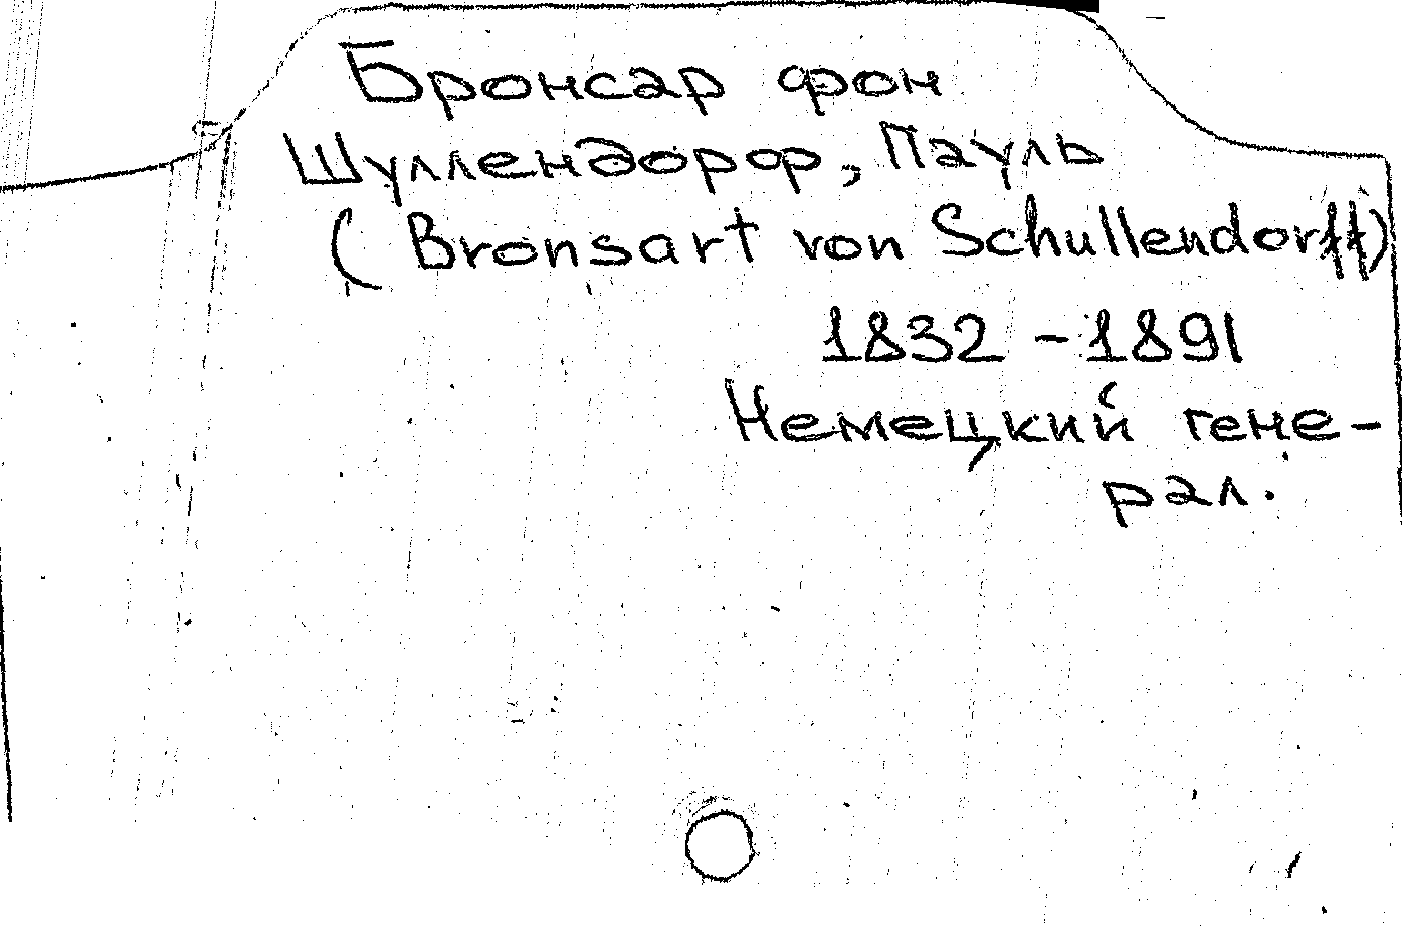 Бронсар фон
Шуллендорф, Пауль
(Bronsart von Schullendorff)
1832 - 1891
Немецкий гене-
рал.